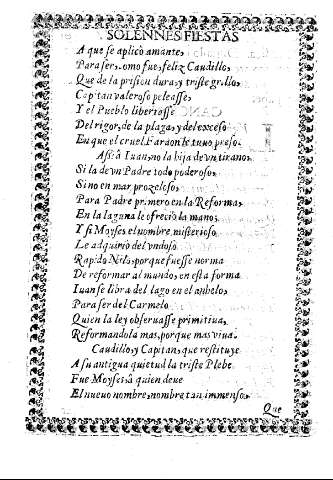 SOLENNES FIESTAS
A que se aplicò amante,
Para ser, como fue, feliz Caudillo,
Que de la prision dura, y triste grillo,
Capitan valeroso peleasse,
Y el Pueblo libertosse
Del rigor, de la plaga, y del excesso
En que el cruel Faraon le tuuo preso.
Assi à Iuan, no la hija de vn tirano,
Si la de vn Padre todo poderoso,
Sino en mar proceloso,
Para Padre primero en la Reforma,
En la laguna le ofreciò la mano;
Y si Moyses el nombre misterioso
Le adquiriò del vndoso
Rapido Nilo, porque fuesse norma
De reformar al mundo, en esta forma
Iuan se libra del lago en el anhelo,
Para ser del Carmelo
Quien la ley obseruasse primitiua,
Reformandola mas, porque mas viua.
Caudillo, y Capitan, que restituye
A su antigua quietud la triste Plebe
Fue Moyses, à quien deue
El nueuo nombre, nombre tan immenso,
Que